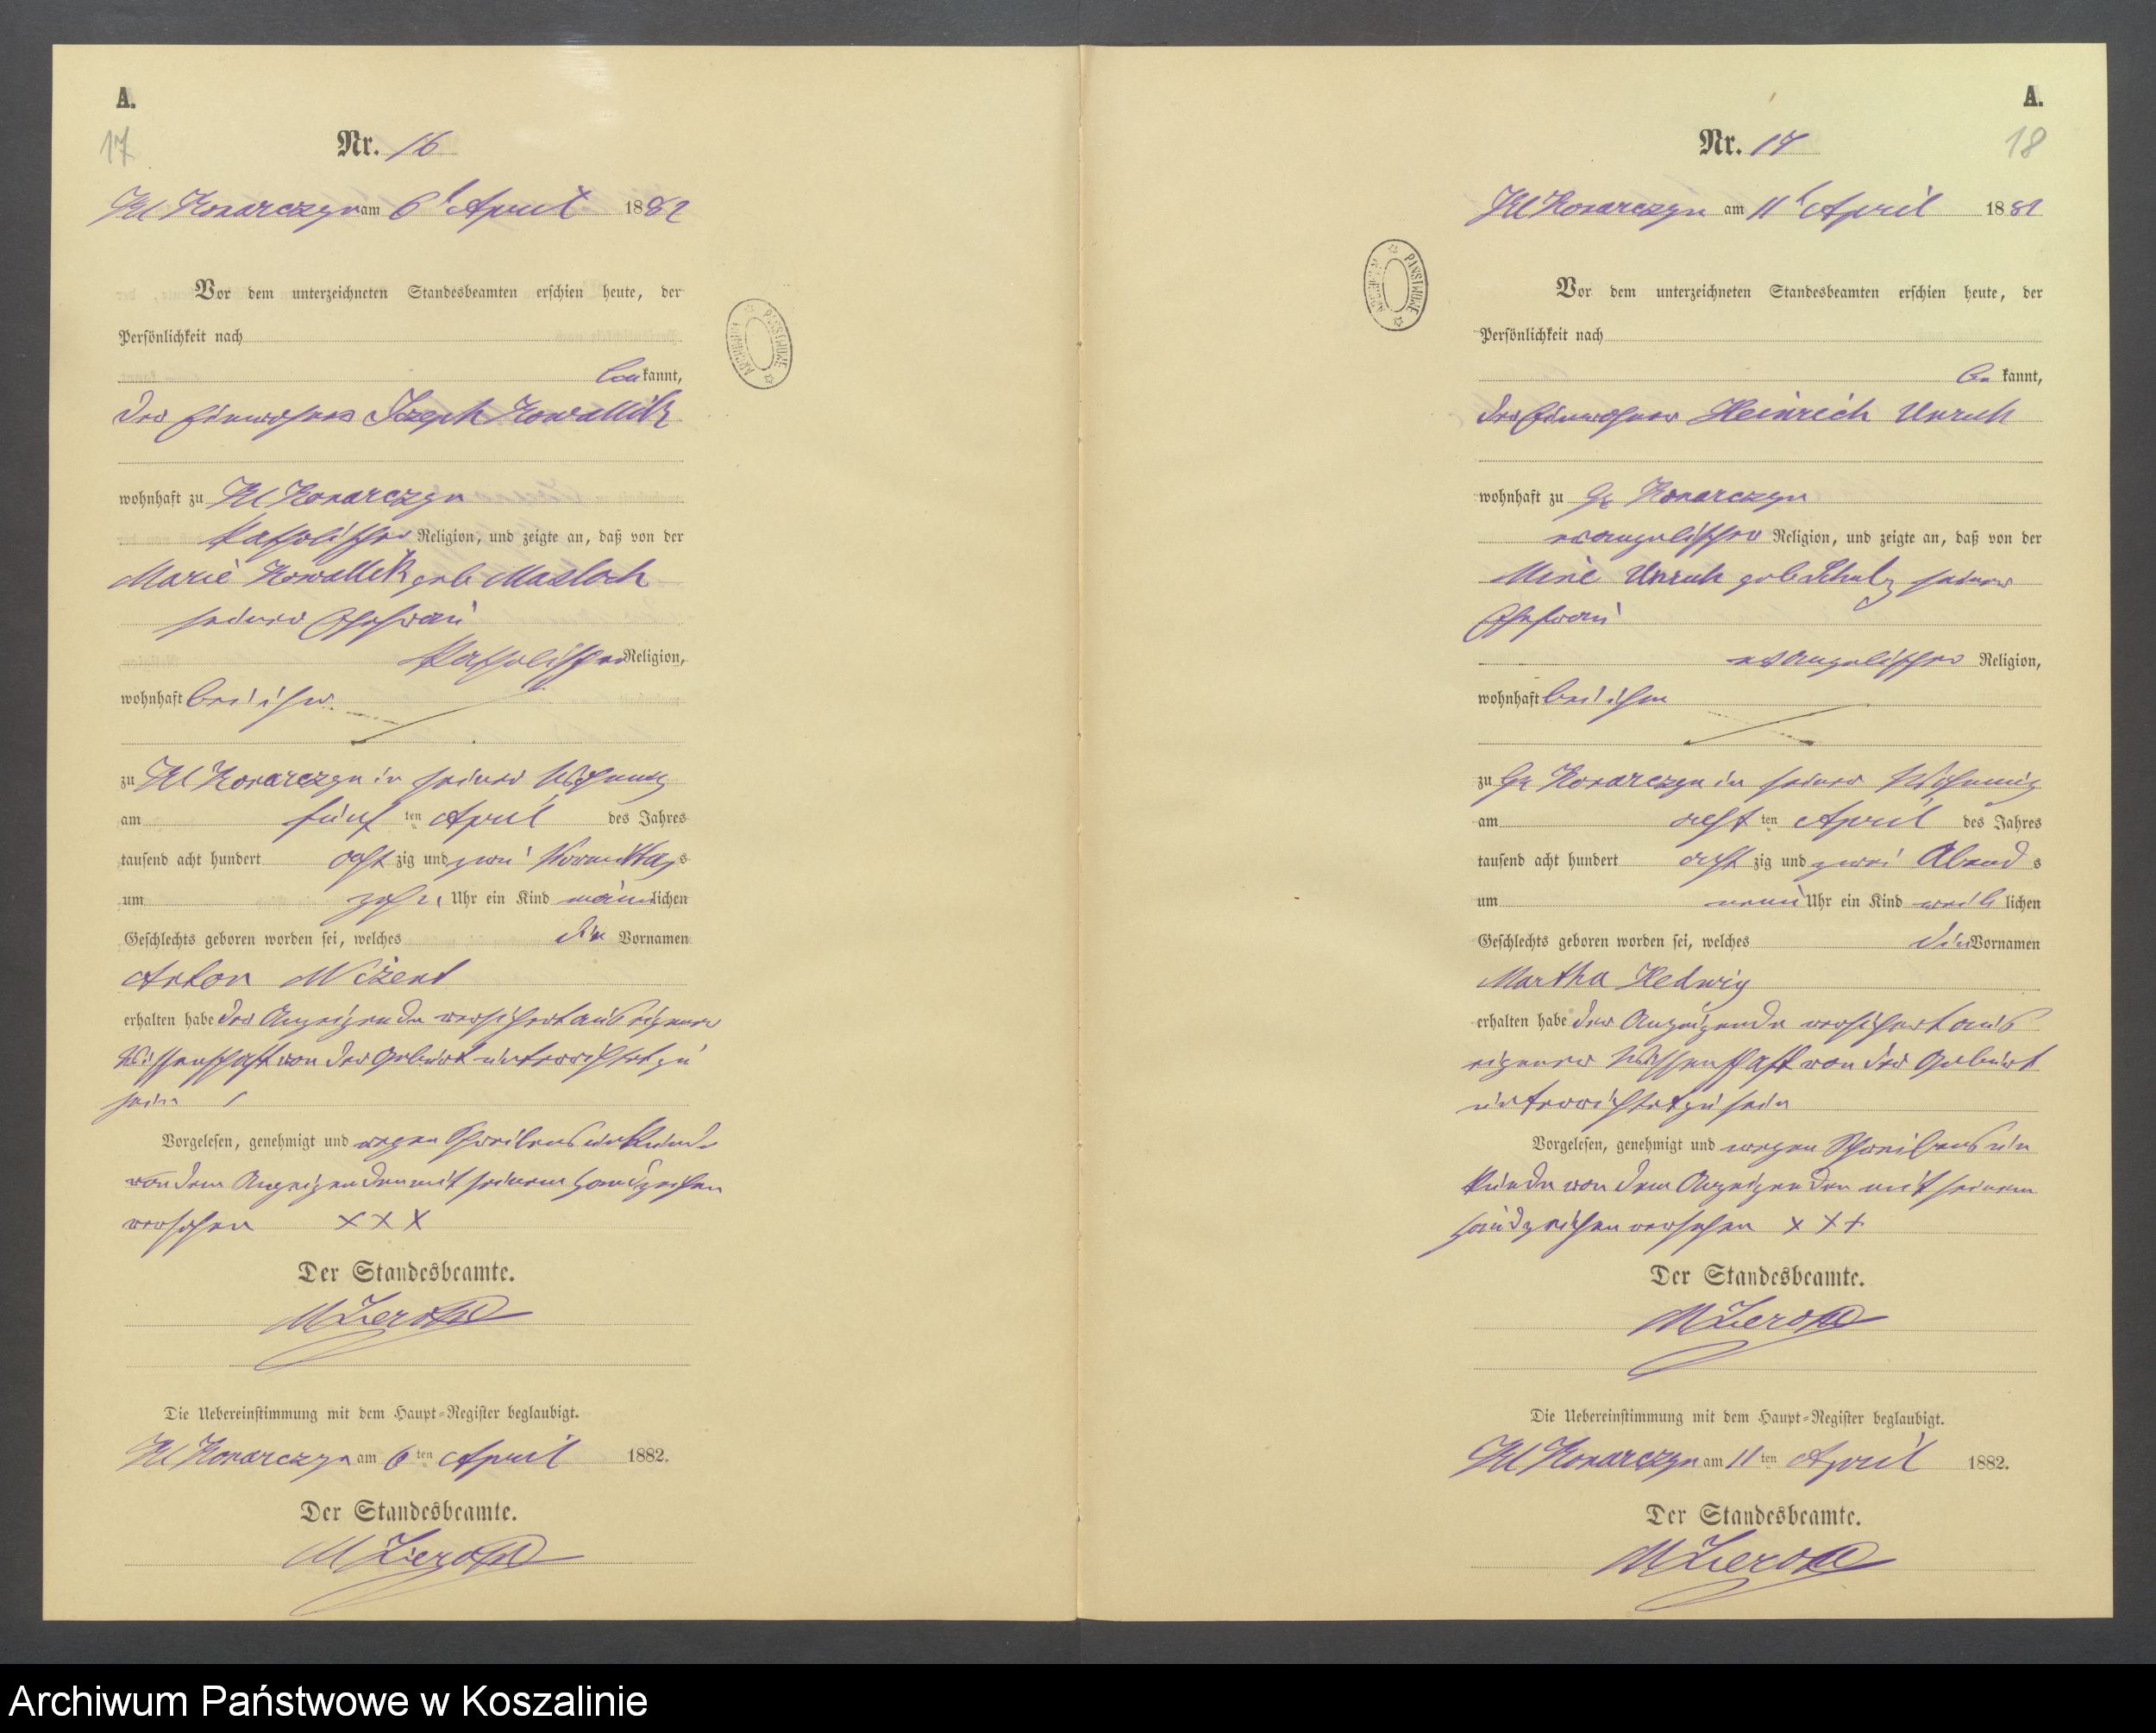 A.
17
Nr. 16
Kl Konarczyn am 6t April 1882
Vor dem unterzeichneten Standesbeamten erschien heute, der
Persönlichkeit nach
be kannt,
der Einwohner Joseph Kowallik
wohnhaft zu Kl Konarczyn
katholischer Religion, und zeigte an, daß von der
Marie Kowallik geb Masloch
seiner Ehefrau
katholischer Religion,
wohnhaft bei ihm
zu Kl Konarczyn in seiner Wohnung
am fünf ten April des Jahres
tausend acht hundert acht zig und zwei Vormittags
um zehn Uhr ein Kind männlichen
Geschlechts geboren worden sei, welches die Vornamen
Anton
erhalten habe der Anzeigende versichert aus eigener
Wissenschaft von der Geburt unterrichtet zu
sein
Vorgelesen, genehmigt und wegen Schreibensunkunde
von dem Anzeigenden mit seinem Handzeichen
versehen x x x
Der Standesbeamte.
Die Uebereinstimmung mit dem Haupt=Register beglaubigt.
Kl Konarczyn am 6 ten April 1882.
Der Standesbeamte.
A.
18
Nr. 17
Kl Konarczyn am 11t April 1882
Vor dem unterzeichneten Standesbeamten erschien heute, der
Persönlichkeit nach
be kannt,
der Einwohner Heinrich Unruh
wohnhaft zu Gr Konarczyn
evangelischer Religion, und zeigte an, daß von der
Mine Unruh geb Schulz seiner
Ehefrau
evangelischer Religion,
wohnhaft bei ihm
zu Gr Konarczyn in seiner Wohnung
am acht ten April des Jahres
tausend acht hundert acht zig und zwei Abend s
um neun Uhr ein Kind weib lichen
Geschlechts geboren worden sei, welches die Vornamen
Martha Hedwig
erhalten habe der Anzeigende versichert aus
eigener Wissenschaft von der Geburt
unterrichtet zu sein
Vorgelesen, genehmigt und wegen Schreibensun
kunde von dem Anzeigenden mit seinem
Handzeichen versehen x x x
Der Standesbeamte.
Die Uebereinstimmung mit dem Haupt=Register beglaubigt.
Kl Konarczyn am 11 ten April 1882.
Der Standesbeamte.
ARCHIWUM PAŃSTWOWE
Archiwum Państwowe w Koszalinie